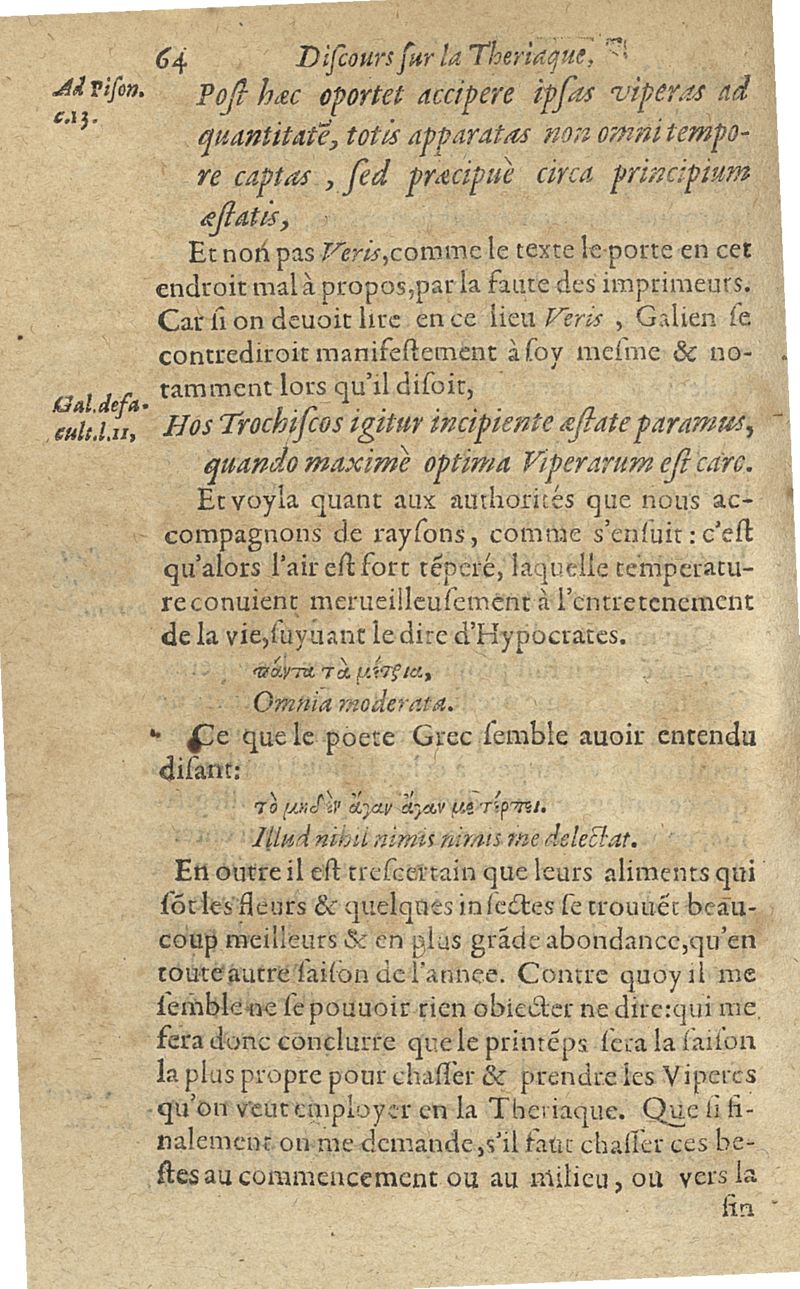 64 Diſcours ſur la Theriaque,
Ad Piſon.
c.13.
Poſt hæc oportet accipere ipſas viperas ad
quantitatē, totis apparatas non omni tempo-
re captas , ſed præcipuè circa principium
æſtatis,
Et non pas Veris,comme le texte le porte en cet
endroit mal à propos,par la faute des imprimeurs.
Car ſi on deuoit lire en ce lieu Veris , Galien ſe
contrediroit manifeſtement à ſoy meſme & no-
tamment lors qu'il diſoit,
Gal.defa-
cult.l.11,
Hos Trochiſcos igitur incipiente æſtate paramus,
quando maximè optima Viperarum eſt caro.
Et voyla quant aux authorités que nous ac-
compagnons de rayſons, comme s'enſuit : c'eſt
qu'alors l'air eſt fort tēperé, laquelle temperatu-
re conuient merueilleuſement à l'entretenement
de la vie,ſuyuant le dire d'Hypocrates.
πάντα τὰ μέτρια,
Omnia moderata.
Ce que le poete Grec ſemble auoir entendu
diſant:
τὸ μηδὲν ἄγαν ἄγαν με τέρπει.
Illud nihil nimis nimis me delectat.
En outre il eſt treſcertain que leurs aliments qui
sōt les fleurs & quelques inſectes ſe trouuēt beau-
coup meilleurs & en plus grāde abondance,qu'en
toute autre ſaiſon de l'annee. Contre quoy il me
ſemble ne ſe pouuoir rien obiecter ne dire:qui me
fera donc conclurre que le printēps ſera la ſaiſon
la plus propre pour chaſſer & prendre les Viperes
qu'on veut employer en la Theriaque. Que ſi fi-
nalement on me demande,s'il faut chaſſer ces be-
ſtes au commencement ou au milieu, ou vers la
fin